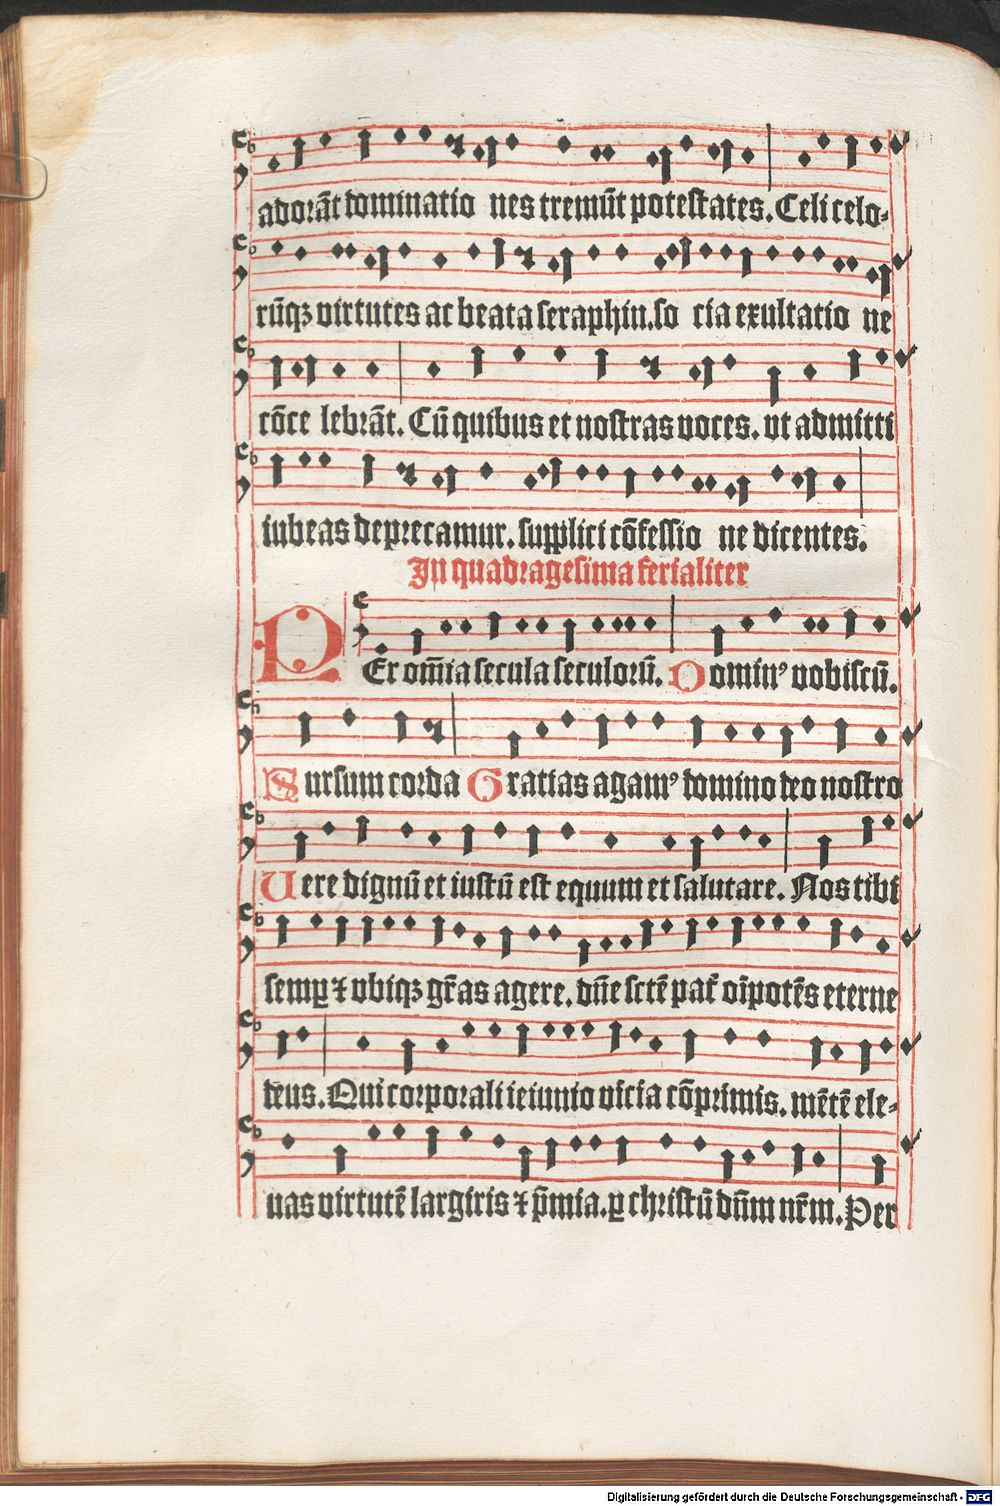 adorāt dominatio nes tremūt potestates. Celi celo-
rūqꝫ virtutes ac beata seraphin. so cia exultatio ne
cōce lebrāt. Cū quibus et nostras voces. vt admitti
iubeas deprecamur. supplici cōfessio ne dicentes.
In quadragesima ferialiter
PEr om̄ia secula seculorū. Dominꝰ vobiscū.
Sursum corda Gratias agamꝰ domino deo nostro
Uere dignū et iustū est equum et salutare. Nos tibi
semꝑ ⁊ vbiqꝫ gr̄as agere. dn̄e sctē pat̄ oīpotēs eterne
deus. Qui corporali ieiunio vicia cōprimis. mētē ele-
uas virtutē largiris ⁊ p̄mia. ꝑ christū dn̄m nr̄m. Per
Digitalisierung gefördert durch die Deutsche Forschungsgemeinschaft - DFG